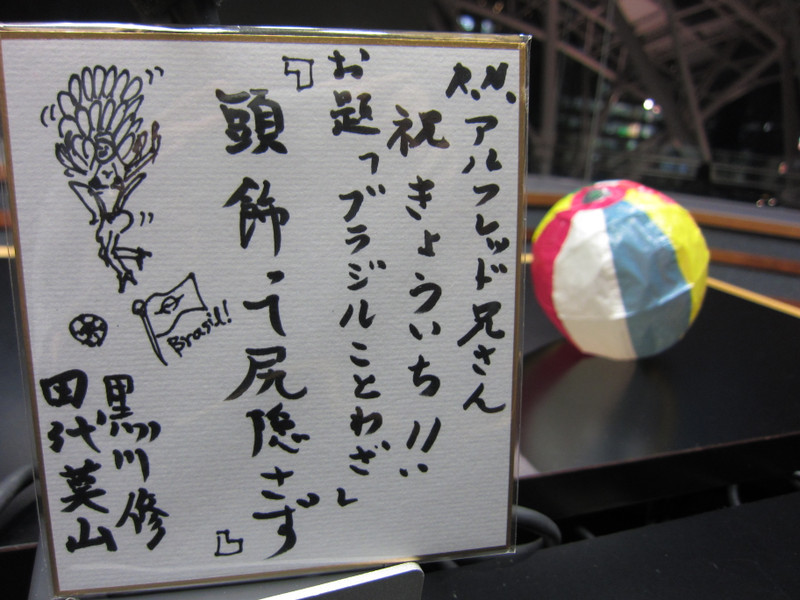 R.N.アルフレッド兄さん
祝きょういち!!
お題「ブラジルことわざ」
『頭飾って尻隠さず』
Brasil!
黒川修
田代英山